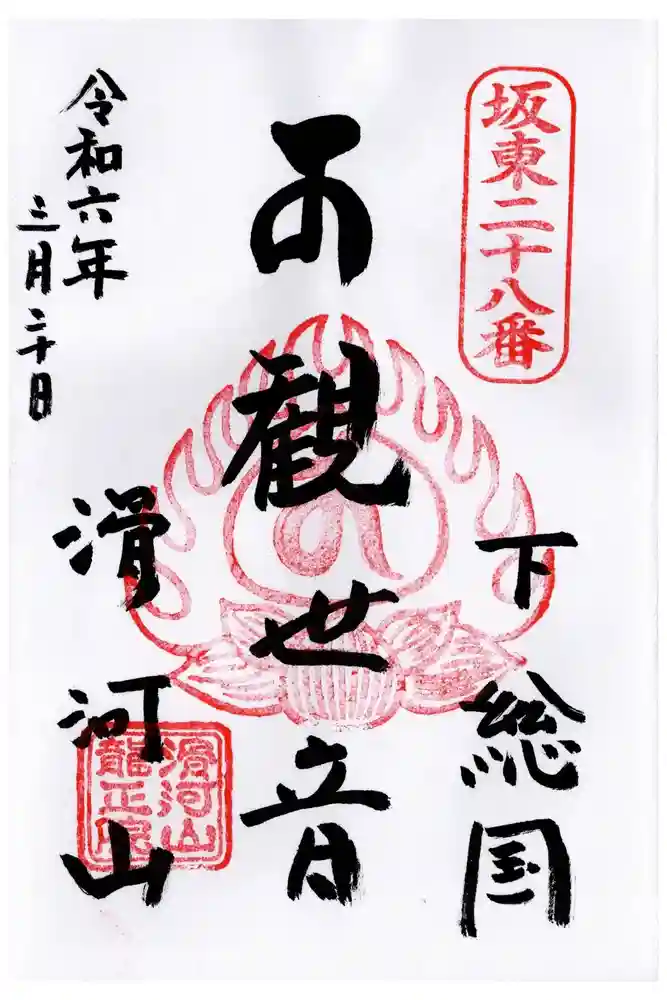 坂東二十八番
下総国
观世音
滑河山
令和六年
三月二十日
滑河山
龍正院